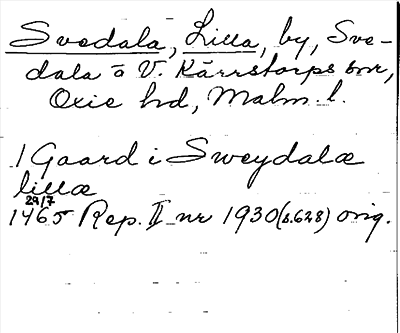 Svedala, Lilla, by, Sve-
dala o V. Kärrstorps snr,
Oxie hd, Malm. l.
1 Gaard i Sweydalæ
lillæ
29/7
1465 Rep. II nr 1930 (s. 628) orig.